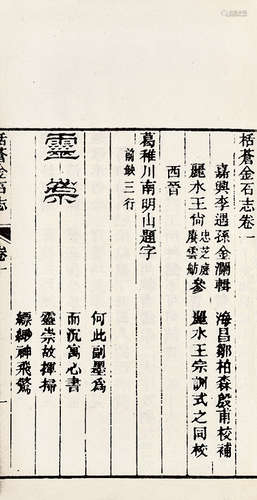 括蒼金石志卷一
嘉興李遇孫金瀾輯
海昌鄒柏森殷甫校補
麗水王尙忠芝庭賡雲舫參
麗水王宗訓式之同校
西晉
葛稚川南明山題字
前缺三行
靈崇
何此副墨爲
而沉寓心書
靈崇故揮掃
縹緲神飛驚
括蒼金石志
卷一